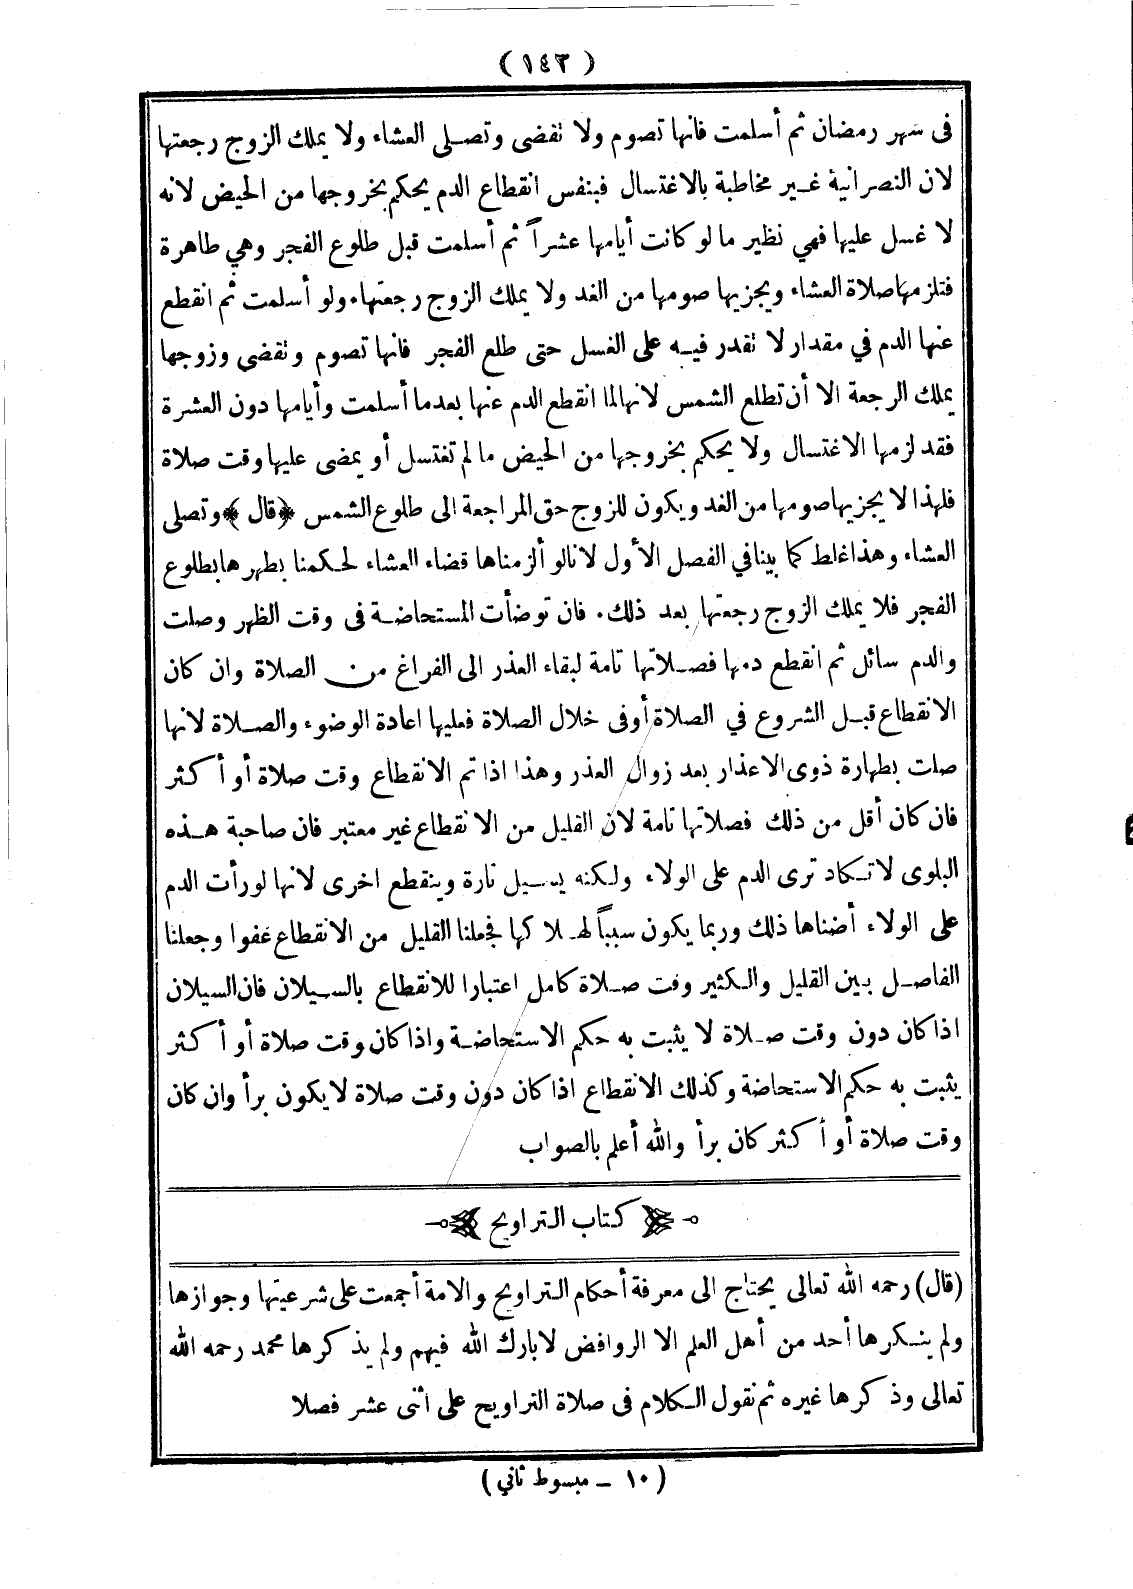 (١٤٣)
فى شهر رمضان ثم أسلمت فانها تصوم ولا تقضى وتصلى العشاء ولا يملك الزوج رجعتها
لان النصرانية غير مخاطبة بالاغتسال فبنفس انقطاع الدم يحكم بخروجها من الحيض لانه
لا غسل عليها فهي نظير ما لو كانت أيامها عشراً ثم أسلمت قبل طلوع الفجر وهي طاهرة
فتلزمها صلاة العشاء ويجزيها صومها من الغد ولا يملك الزوج رجعتها. ولو أسلمت ثم انقطع
عنها الدم في مقدار لا تقدر فيه على الغسل حتى طلع الفجر فانها تصوم وتقضى وزوجها
يملك الرجعة الا أن تطلع الشمس لانها لما انقطع الدم عنها بعدما أسلمت وأيامها دون العشرة
فقد لزمها الاغتسال ولا يحكم بخروجها من الحيض ما لم تغتسل أو يمضى عليها وقت صلاة
فلهذا لا يجزيها صومها من الغد ويكون للزوج حق المراجعة الى طلوع الشمس ﴿قال﴾ وتصلى
العشاء وهذا غلط كما بينا في الفصل الأول لانا لو ألزمناها قضاء العشاء لحكمنا بطهرها بطلوع
الفجر فلا يملك الزوج رجعتها بعد ذلك. فان توضأت المستحاضة فى وقت الظهر وصلت
والدم سائل ثم انقطع دمها فصلاتها تامة لبقاء العذر الى الفراغ من الصلاة وان كان
الانقطاع قبل الشروع في الصلاة أو فى خلال الصلاة فعليها اعادة الوضوء والصلاة لانها
صلت بطهارة ذوى الاعذار بعد زوال العذر وهذا اذا تم الانقطاع وقت صلاة أو أكثر
فان كان أقل من ذلك فصلاتها تامة لان القليل من الانقطاع غير معتبر فان صاحبة هذه
البلوى لا تكاد ترى الدم على الولاء ولكنه يسيل تارة وينقطع اخرى لانها لو رأت الدم
على الولاء أضناها ذلك وربما يكون سبباً لهلاكها فجعلنا القليل من الانقطاع عفوا وجعلنا
الفاصل بين القليل والكثير وقت صلاة كامل اعتبارا للانقطاع بالسيلان فان السيلان
اذا كان دون وقت صلاة لا يثبت به حكم الاستحاضة واذا كان وقت صلاة أو أكثر
يثبت به حكم الاستحاضة وكذلك الانقطاع اذا كان دون وقت صلاة لا يكون برأ وان كان
وقت صلاة أو أكثر كان برأ والله أعلم بالصواب
كتاب التراويح
(قال) رحمه الله تعالى يحتاج الى معرفة أحكام التراويح والامة أجمعت على شرعيتها وجوازها
ولم ينكرها أحد من أهل العلم الا الروافض لا بارك الله فيهم ولم يذكرها محمد رحمه الله
تعالى وذكرها غيره ثم نقول الكلام فى صلاة التراويح على اثنى عشر فصلا
(١٠ ــ مبسوط ثاني)